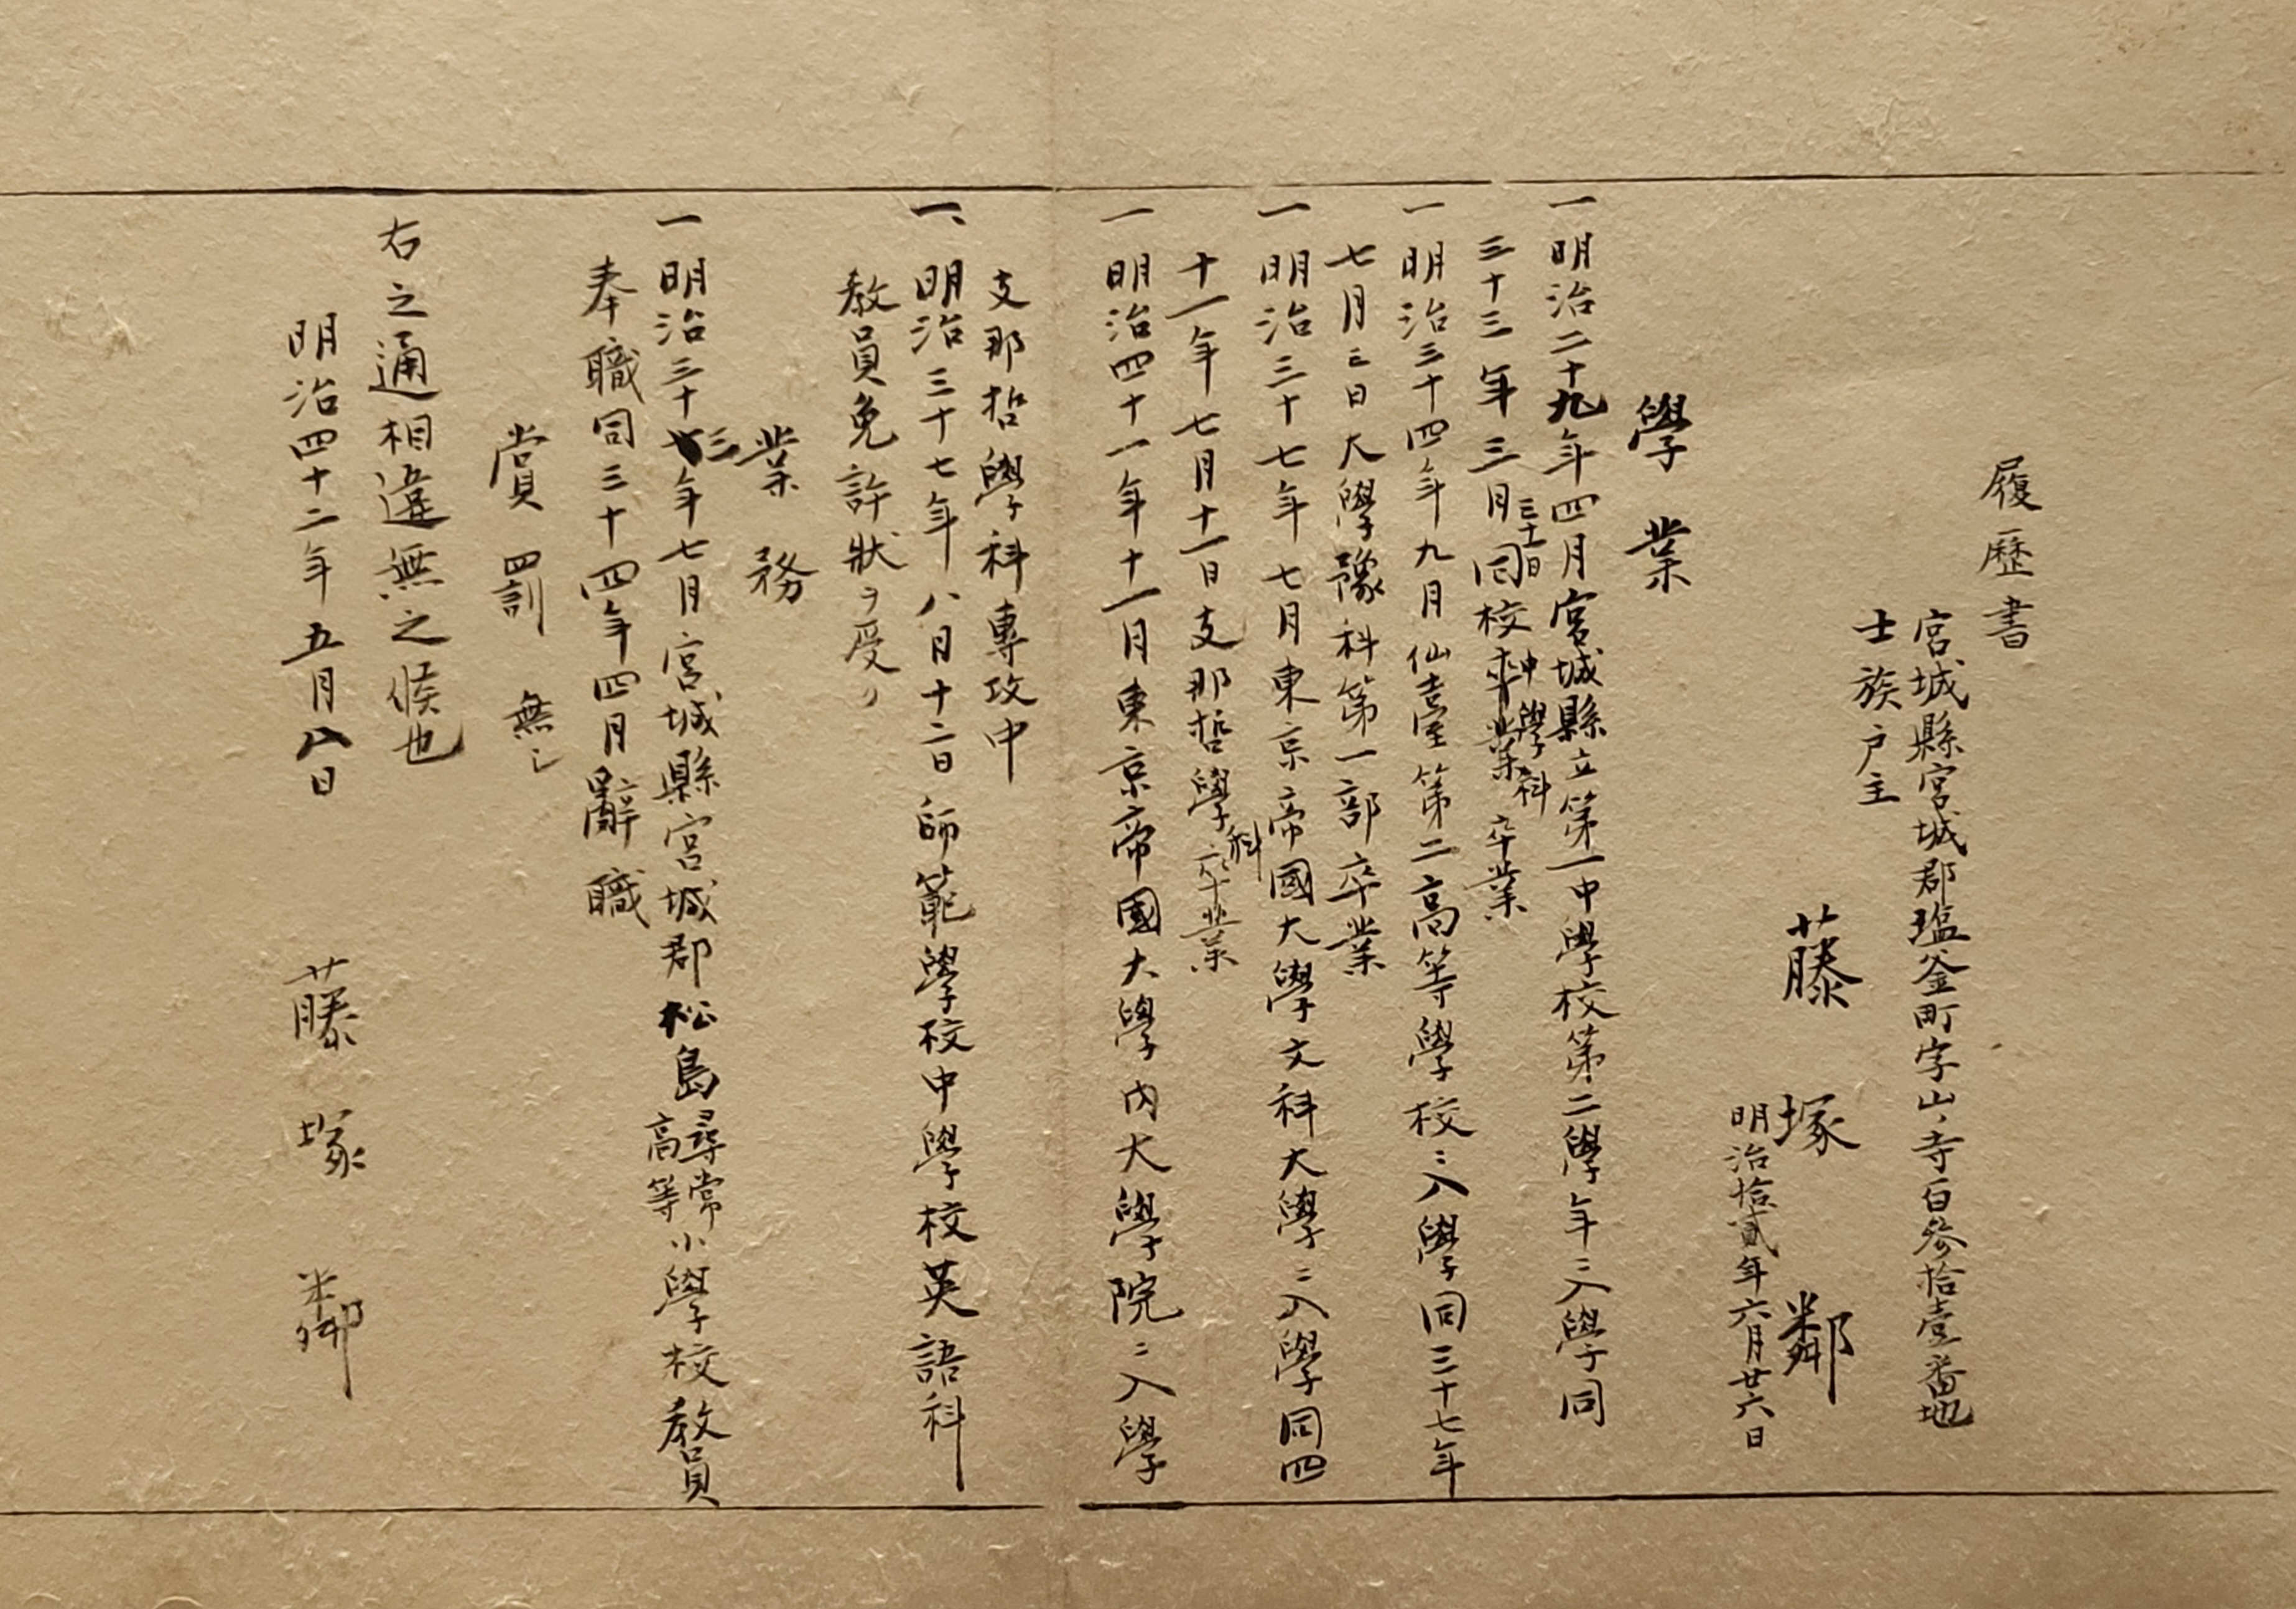 履歴書
宮城縣宮城郡塩釜町字山ノ寺百參拾壹番地
士族戸主
藤塚鄰
明治拾貳年六月廿六日
學業
一明治二十九年四月宮城縣立第一中學校第二學年ニ入學同
三十三年三月三十一日同校中學科卒業
一明治三十四年九月仙臺第二高等學校ニ入學同三十七年
七月三日大學豫科第一部卒業
一明治三十七年七月東京帝國大學文科大學ニ入學同四
十一年七月十一日支那哲學科卒業
一明治四十一年十一月東京帝國大學內大學院ニ入學
支那哲學科專攻中
一、明治三十七年八月十二日師範學校中學校英語科
教員免許狀ヲ受ク
業務
一明治三十三年七月宮城縣宮城郡松島尋常高等小學校教員
奉職同三十四年四月辭職
賞罰無シ
右之通相違無之候也
明治四十二年五月八日
藤塚鄰